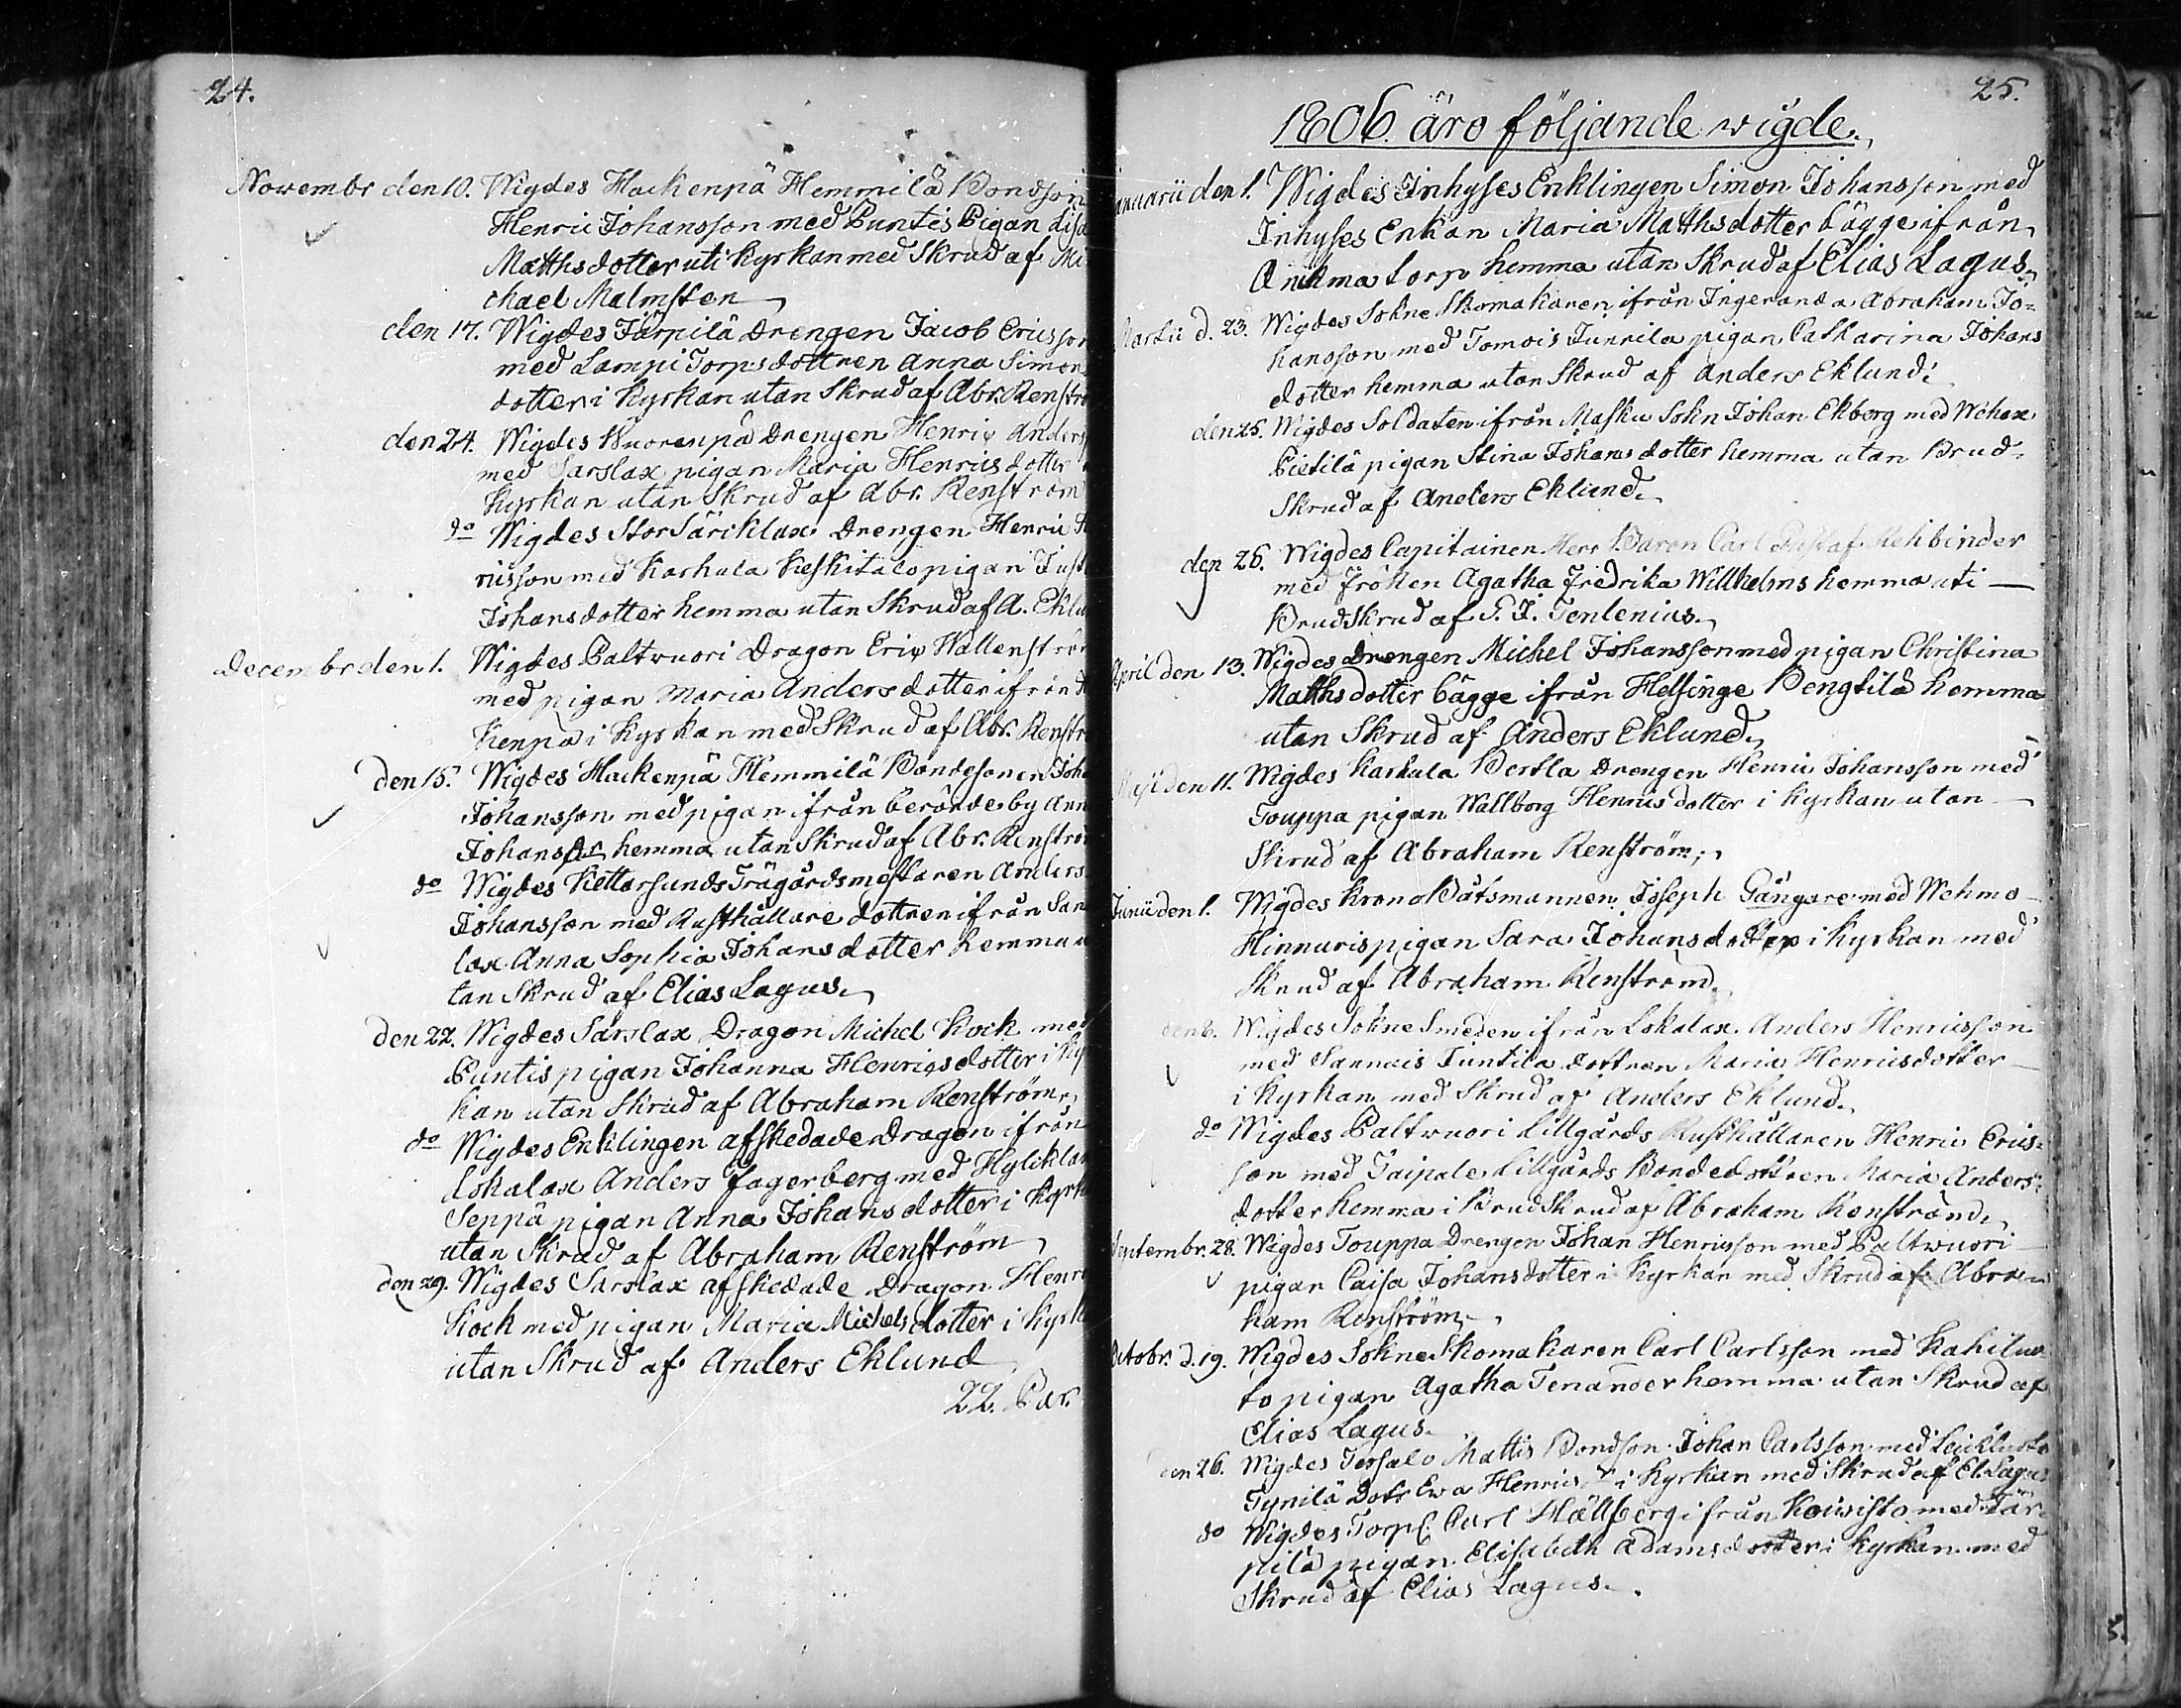 24.
Novembr den 10. Wigdes Hackenpä Hemmilä Bondson
Henric Johansson med Puntis Pigan Lisa
Matthsdotter uti Kyrkan med Skrud af Mi
chael Malmsten
den 17. Wigdes Järpilä Drengen Jacob Ericsson
med Lampi Torpsdottren Anna Simons
dotter i Kyrkan utan Skrud af Abr. Renströ
den 24. Wigdes Wuorenpä Drengen Henric Anders
med Sarslax pigan Maria Henricsdotter
Kyrkan utan Skrud af Abr. Renström
do Wigdes Stor Särcklax Drengen Henric H
ricsson med Karhula Keskitalo pigan Just
Johansdotter hemma utan Skrud af A. Eklu
Decembr den 1. Wigdes Paltwuori Dragon Eric Wallenströ
med pigan Maria Andersdotter ifrån H
kenpä i Kyrkan med Skrud af Abr. Renstr
den 15. Wigdes Hackenpä Hemmilä Bondesonen Joha
Johansson med pigan ifrån beröndeby Ann
Johansdr hemma utan Skrud af Abr. Renströ
do Wigdes Kettarsunds Trägårdsmestaren Anders
Johansson med Rusthållare dottren ifrån Sar
lax Anna Sophia Johansdotter hemma u
tan Skrud af Elias Lagus.
den 22. Wigdes Sarslax Dragon Michel Kock med
Puntis pigan Johanna Henrigsdotter i Kyr
kan utan Skrud af Abraham Renström,
do Wigdes Enklingen afskedade Dragon ifrån
Lokalax Anders Fagerberg med Hylikla
Seppä pigan Anna Johansdotter i Kyrk
utan Skrud af Abraham Renström
den 29. Wigdes Sarslax afskedade Dragon Henri
Kock med pigan Maria Michelsdotter i Kyrk
utan Skrud af Anders Eklund
22. Par.
25.
1806 äro följande wigde.
anuarii den 1. Wigdes Inhyses Enklingen Simon Johansson med
Inhyses Enkan Maria Matthsdotter bägge ifrån
Anikma torp hemma utan Skrud af Elias Lagus.
Martii d. 23. Wigdes Sokne Skomakaren ifrån Ingeranda Abraham Jo-
hansson med Tomois Junnila pigan Catharina Johans
dotter hemma utan Skrud af Anders Eklund.
den 25. Wigdes Soldaten ifrån Masku Sokn Johan Ekberg med Wehax
Pietilä pigan Stina Johansdotter hemma utan Brud-
Skrud af Anders Eklund.
den 26. Wigdes Capitainen Herr Baron Carl Gustaf Rehbinder
med Fröken Agatha Fredrika Willhelms hemma uti
Brudskrud af G. J. Tenlenius.
April den 13. Wigdes Drengen Michel Johansson med pigan Christina
Matthsdotter bägge ifrån Helsinge Bengtilä hemma
utan Skrud af Anders Eklund.
Maji den 11. Wigdes Karhula Pertla Drengen Henric Johansson med
Touppa pigan Wallborg Henricsdotter i Kyrkan utan
Skrud af Abraham Renström.
Junii den 1. Wigdes Krono Båtsmannen Joseph Gångare med Wehmo
Hinnaris pigan Sara Johansdotter i Kyrkan med
Skrud af Abraham Renström.
den 8. Wigdes Sokne Smeden ifrån Lokalax Anders Henricsson
med Sannais Juntila dottren Maria Henricsdotter
i Kyrkan med Skrud af Anders Eklund.
do Wigdes Paltwuori Lillgårds Rusthållaren Henric Erics-
son med Taipale Lillgårds Bondedottren Maria Anders-
dotter hemma i Brudskrud af Abraham Renström.
Septembr. 28. Wigdes Touppa Drengen Johan Henricsson med Paltwuori
pigan Caisa Johansdotter i Kyrkan med Skrud af Abra-
ham Renström.
Octobr. d. 19. Wigdes Sokne Skomakaren Carl Carlsson med Kahiluo
to pigan Agatha Tenander hemma utan Skrud af
Elias Lagus.
den 26. Wigdes Tersalo Mattis Bondson Johan Carlsson med Leickluoto
Tynilä Dotr Ewa Henricsdr i Kyrkan med Skrud af El. Lagus
do Wigdes Torp. Carl Hällberg ifrån Kouwisto med Jär-
pilä pigan Elisabeth Adamsdotter i Kyrkan med
Skrud af Elias Lagus.